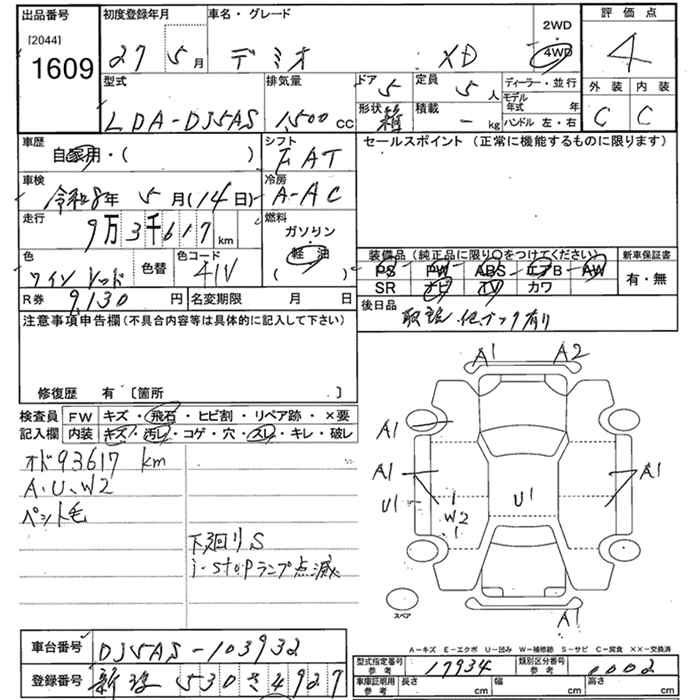 出品番号 初度登録年月 車名・グレード 2WD 評価点
[2044] 1609 27 5月 デミオ XD 4WD 4
型式 排気量 ドア 5 定員 5人 ディーラー・並行 外装 内装
LDA-DJ5AS 1,500 cc 形状 箱 積載 - kg モデル年式 年 ハンドル 左・右 C C
車歴 シフト セールスポイント (正常に機能するものに限ります)
自家用・( ) FAT
車検 冷房
令和8年 5月(14日) A-AC
走行 燃料
9万3千617km ガソリン
軽油
( )
色 色替 色コード 装備品(純正品に限り○をつけてください) 新車保証書
ワインレッド 41V PS PW ABS エアB AW 有・無
SR ナビ TV カワ
R券 9,130円 名変期限 月 日 後日品 取説
注意事項申告欄(不具合内容等は具体的に記入して下さい)
修復歴 有 [箇所 ]
検査員 FW キズ・飛石・ヒビ割・リペア跡・×要
記入欄 内装 キズ・汚レ・コゲ・穴・スレ・キレ・破レ
オド93617 km
A、U、W2
ペット毛
下廻りS
i-stopランプ点滅
A1 A2
A1
A1 A1
U1 W2 U1
A1
スペア
A-キズ E-エクボ U-凹み W-補修跡 S-サビ C-腐食 ××-交換済
車台番号 DJ5AS-103932
型式指定番号 参考 17934 類別区分番号 参考 0002
登録番号 530 さ 4927
車庫証明用 参考 長さ cm 幅 cm 高さ cm